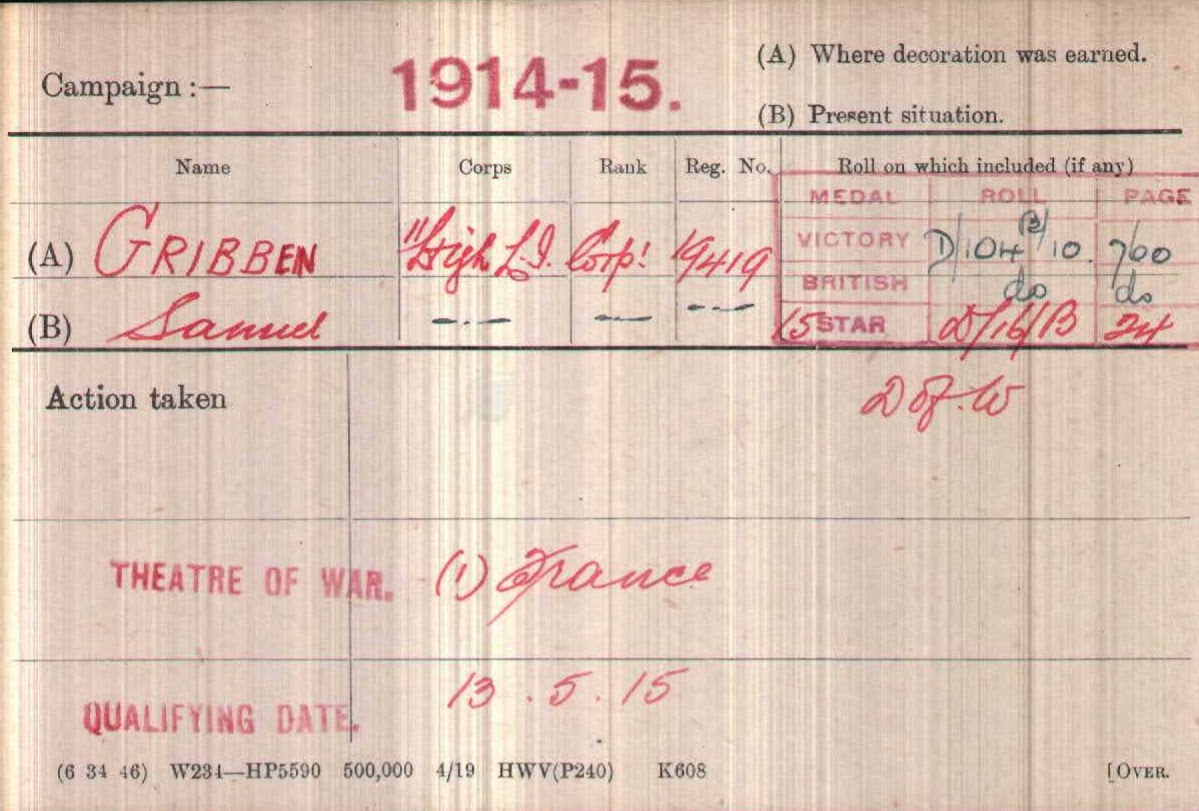 Campaign :— 1914-15. (A) Where decoration was earned.
(B) Present situation.
Name Corps Rank Reg. No. Roll on which included (if any)
MEDAL ROLL PAGE
(A) GRIBBEN "High L.I. Corpl 19419 VICTORY D/104 B/10. 700
BRITISH do do
(B) Samuel —.— — —.— 15 STAR D/16/B 24
Action taken D of. W
THEATRE OF WAR. (1) France
QUALIFYING DATE. 13 . 5 . 15
(6 34 46) W234—HP5590 500,000 4/19 HWV(P240) K608 [OVER.